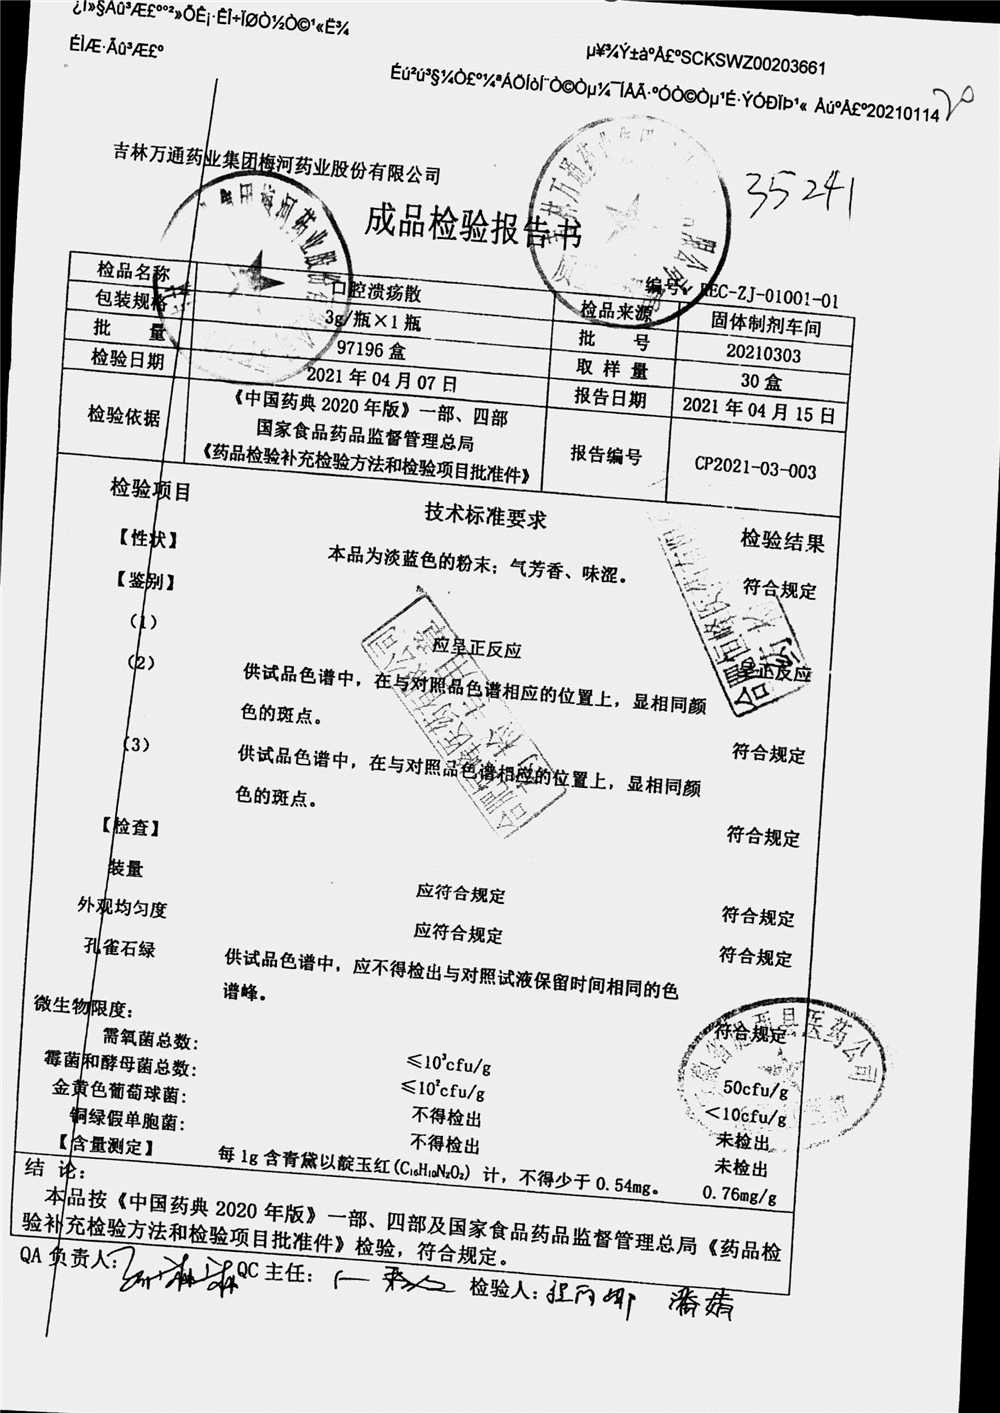 µ¥¾Ý±àºÅ£ºSCKSWZ00203661
ÉÌÆ·Ãû³Æ£º
20210114
35241
吉林万通药业集团梅河药业股份有限公司
成品检验报告书
编号 REC-ZJ-01001-01
检品名称 口腔溃疡散 检品来源 固体制剂车间
包装规格 3g/瓶×1瓶 批 号 20210303
批 量 97196盒 取样量 30盒
检验日期 2021年04月07日 报告日期 2021年04月15日
检验依据 《中国药典2020年版》一部、四部
国家食品药品监督管理总局
《药品检验补充检验方法和检验项目批准件》
报告编号 CP2021-03-003
检验项目 技术标准要求 检验结果
【性状】 本品为淡蓝色的粉末；气芳香、味涩。 符合规定
【鉴别】
(1) 应呈正反应 呈正反应
(2) 供试品色谱中，在与对照品色谱相应的位置上，显相同颜
色的斑点。 符合规定
(3) 供试品色谱中，在与对照品色谱相应的位置上，显相同颜
色的斑点。 符合规定
【检查】
装量 应符合规定 符合规定
外观均匀度 应符合规定 符合规定
孔雀石绿 供试品色谱中，应不得检出与对照试液保留时间相同的色
谱峰。 符合规定
微生物限度：
需氧菌总数： ≤10³cfu/g 50cfu/g
霉菌和酵母菌总数： ≤10²cfu/g <10cfu/g
金黄色葡萄球菌： 不得检出 未检出
铜绿假单胞菌： 不得检出 未检出
【含量测定】 每1g含青黛以靛玉红(C₁₆H₁₀N₂O₂)计，不得少于0.54mg。 0.76mg/g
结 论：
本品按《中国药典2020年版》一部、四部及国家食品药品监督管理总局《药品检
验补充检验方法和检验项目批准件》检验，符合规定。
QA负责人： QC主任： 检验人：